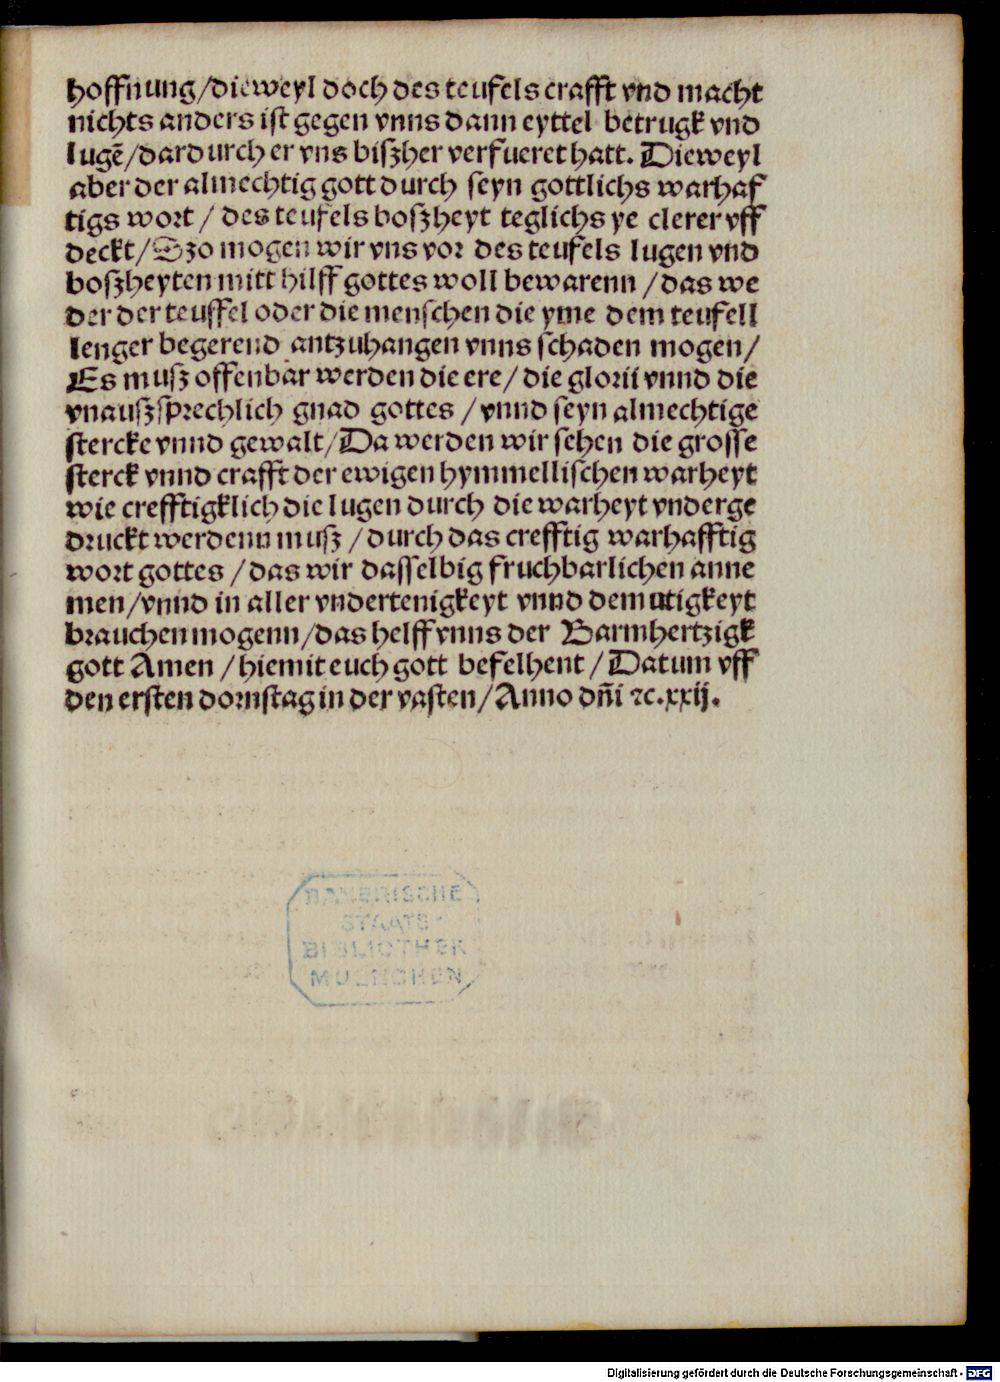 hoffnung/dieweyl doch des teufels crafft vnd macht
nichts anders ist gegen vnns dann eyttel betrugk vnd
lugē/dardurch er vns biſzher verfueret hatt. Dieweyl
aber der almechtig gott durch ſeyn gottlichs warhaf
tigs wort / des teufels boſzheyt teglichs ye clerer vff
deckt/Szo mogen wir vns vor des teufels lugen vnd
boſzheyten mitt hilff gottes woll bewarenn /das we
der der teuffel oder die menſchen die yme dem teufell
lenger begerend antzuhangen vnns ſchaden mogen/
Es muſz offenbar werden die ere/ die glorii vnnd die
vnauſzſprechlich gnad gottes /vnnd ſeyn almechtige
ſtercke vnnd gewalt/Da werden wir ſehen die groſſe
ſterck vnnd crafft der ewigen hymmelliſchen warheyt
wie crefftigklich die lugen durch die warheyt vnderge
druckt werdenn muſz /durch das crefftig warhafftig
wort gottes /das wir daſſelbig fruchbarlichen anne
men/vnnd in aller vndertenigkeyt vnnd demutigkeyt
brauchen mogenn/das helff vnns der Barmhertzigk
gott Amen /hiemit euch gott befelhent /Datum vff
den erſten dornſtag in der vaſten/Anno dn̄i ⁊c.xxij.
BAYERISCHE
STAATS-
BIBLIOTHEK
MUENCHEN
Digitalisierung gefördert durch die Deutsche Forschungsgemeinschaft - DFG